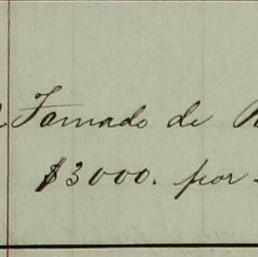 Tomado de
$3000. por